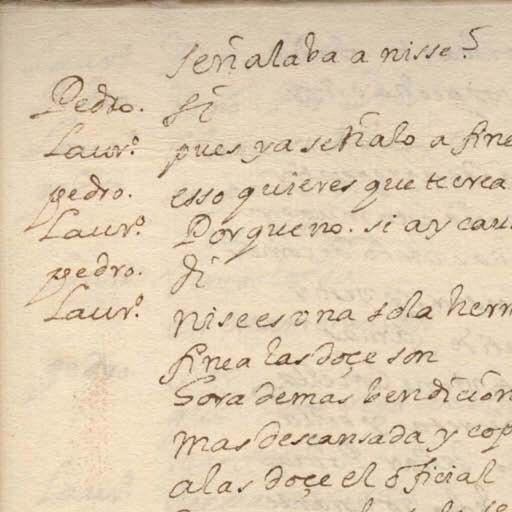 señalaba a nisse?
Pedro. si
Laurº. pues ya señalo a fine
pedro. esso quieres que te crea
Laurº. Porque no. si ay cau
pedro. di
Laurº. nise es una sola herm
finea las doçe son
ora de mas bendición
mas descansada y cop
a las doçe el oficial